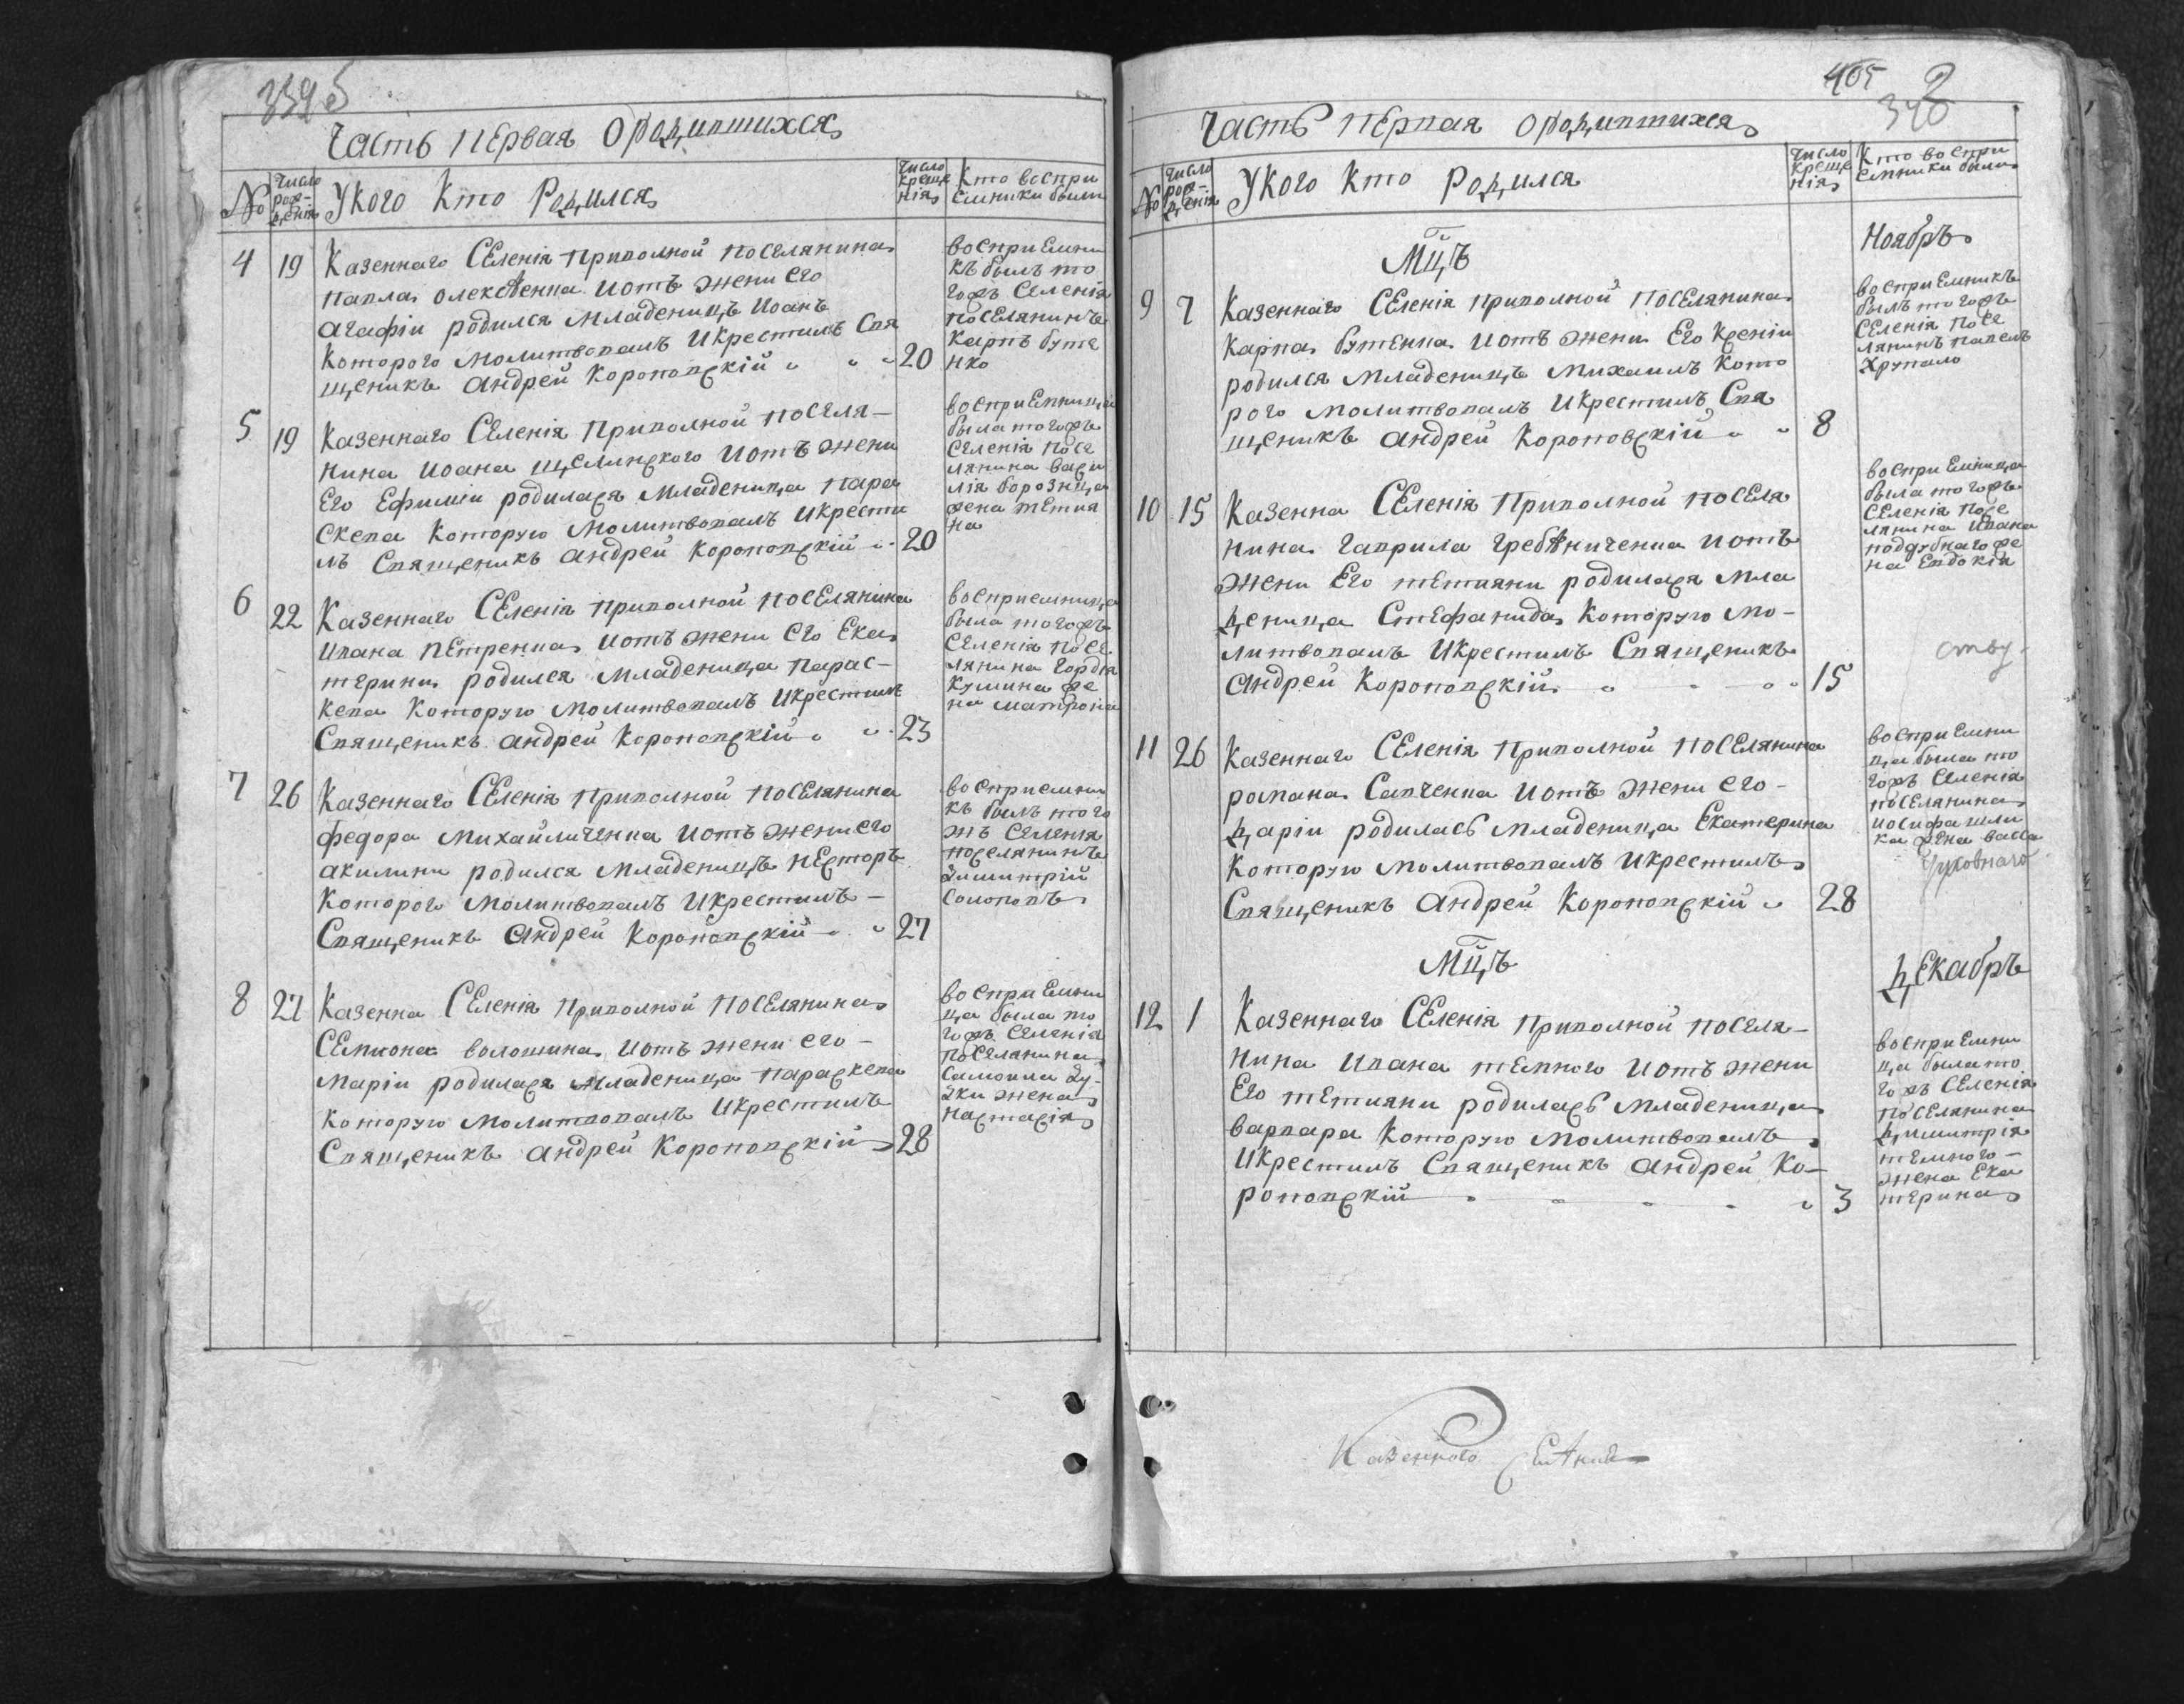 339 б
Часть первая о родившихся
№
Число рож-
денія
У кого кто родился
Число
креще
нія
Кто воспри
емники были
4 19 Казеннаго Селенія Привольной поселянина
Павла Олексѣенка и отъ жени его
Агафіи родился младеницъ Иоанъ
которого молитвовалъ и крестилъ Свя
щеникъ Андрей Короновскій 20
воспріемни
къ былъ то
гожъ Селенія
поселянинъ
Карпъ Буте
нко
5 19 Казеннаго Селенія Привольной поселя-
нина Иоана Щелинского и отъ жени
Его Ефиміи родилася младеница Пара
скева которую молитвовалъ и крести
лъ Священикъ Андрей Короновскій 20
воспріемница
была тогожъ
Селенія посе
лянина Васи
лія Борозница
жена Тетия
на
6 22 Казеннаго Селенія Привольной поселянина
Ивана Петренка и отъ жени его Ека
терини родился младеница Парас-
кева которую молитвовалъ и крестилъ
Священикъ Андрей Короновскій 23
воспріемница
была тогожъ
Селенія посе
лянина Гордія
Кушина же
на Матрона
7 26 Казеннаго Селенія Привольной поселянина
Федора Михайличенка и отъ жени его
Акилини родился младеницъ Несторъ
которого молитвовалъ и крестилъ-
Священикъ Андрей Короновскій 27
воспріемни
къ былъ того
жъ Селенія
поселянинъ
Димитрій
Солоповъ
8 27 Казенна Селенія Привольной поселянина
Семиона Волошина и отъ жени его-
Маріи родилася младеница Параскева
которую молитвовалъ и крестилъ
Священикъ Андрей Короновскій 28
воспріемни
ца была то
гожъ Селенія
поселянина
Самоила Ду-
дки жена
Настасія
405 2
340
Часть первая о родившихся
№
Число
рож-
денія
У кого кто родился
Число
креще
нія
Кто воспри
емники были
Мцъ Ноябрь
9 7 Казеннаго Селенія Привольной поселянина
Карпа Бутенка и отъ жени Его Ксеніи
родился младеницъ Михаилъ кото
рого молитвовалъ и крестилъ Свя
щеникъ Андрей Короновскій 8
воспріемникъ
былъ тогожъ
Селенія посе
лянинъ Павелъ
Хрупало
10 15 Казенна Селенія Привольной поселя
нина Гаврила Гребѣниченка и отъ
жени Его Тетияни родилася мла
деница Стефанида которую мо-
литвовалъ и крестилъ Священикъ
Андрей Короновскій 15
воспріемница
была тогожъ
Селенія посе
лянина Ивана
Поддубнаго же
на Евдокія
11 26 Казеннаго Селенія Привольной поселянина
Романа Савченка и отъ жени его-
Даріи родилась младеница Екатерина
которую молитвовалъ и крестилъ
Священикъ Андрей Короновскій 28
воспріемни
ца была то
гожъ Селенія
поселянина
Иосифа Шли
ка жена Васса
Мцъ Декабрь
12 1 Казеннаго Селенія Привольной поселя-
нина Ивана Темного и отъ жени
Его Тетияни родилась младеница
Варвара которую молитвовалъ
и крестилъ Священикъ Андрей Ко-
роновскій 3
воспріемни
ца была то
гожъ Селенія
поселянина
Димитрія
Темного-
жена Ека
терина
Казенного